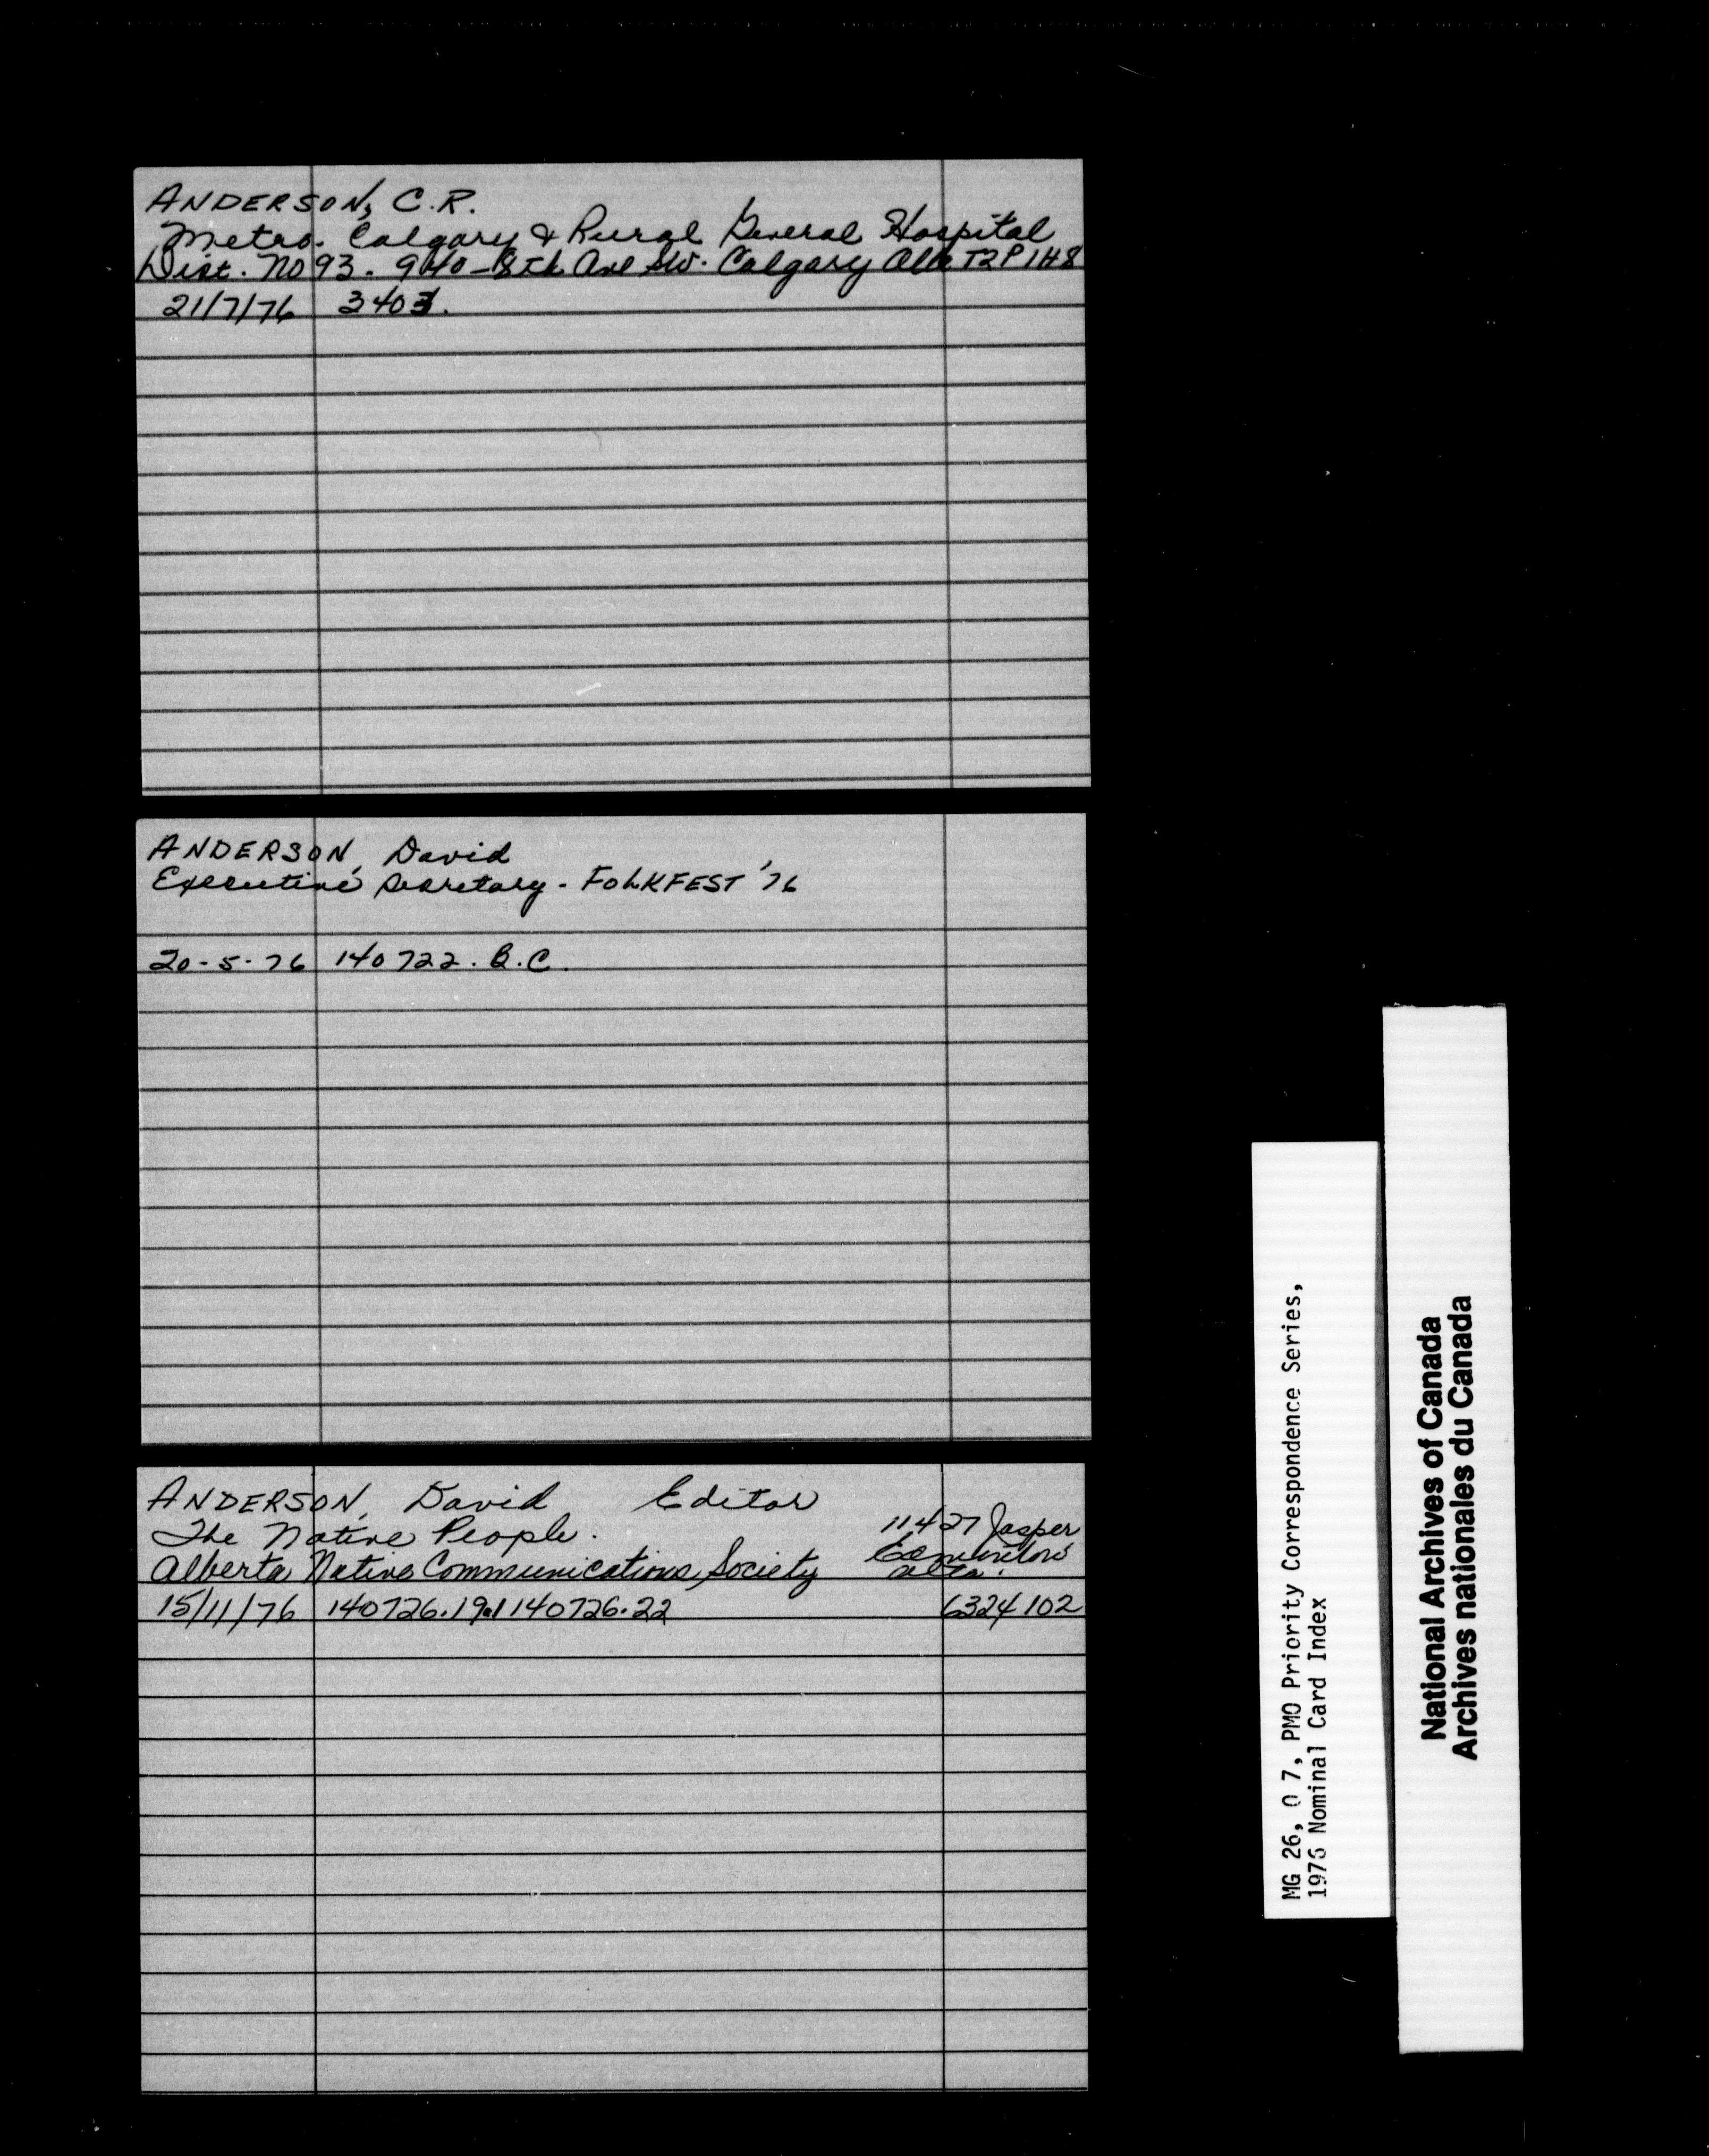 ANDERSON, C.R.
Metro. Calgary & Rural General Hospital
Dist. No 93. 940-8th Ave SW. Calgary Alta T2P 1H8
21/7/76 3403.
ANDERSON, David
Executive Secretary - FOLKFEST '76
20-5-76 140722. B.C.
ANDERSON, David Editor
The Native People. 11427 Jasper
Alberta Native Communications Society Edmonton Alta.
15/11/76 140726.19.1 140726.22 6324102
MG 26, O 7, PMO Priority Correspondence Series,
1976 Nominal Card Index
National Archives of Canada
Archives nationales du Canada